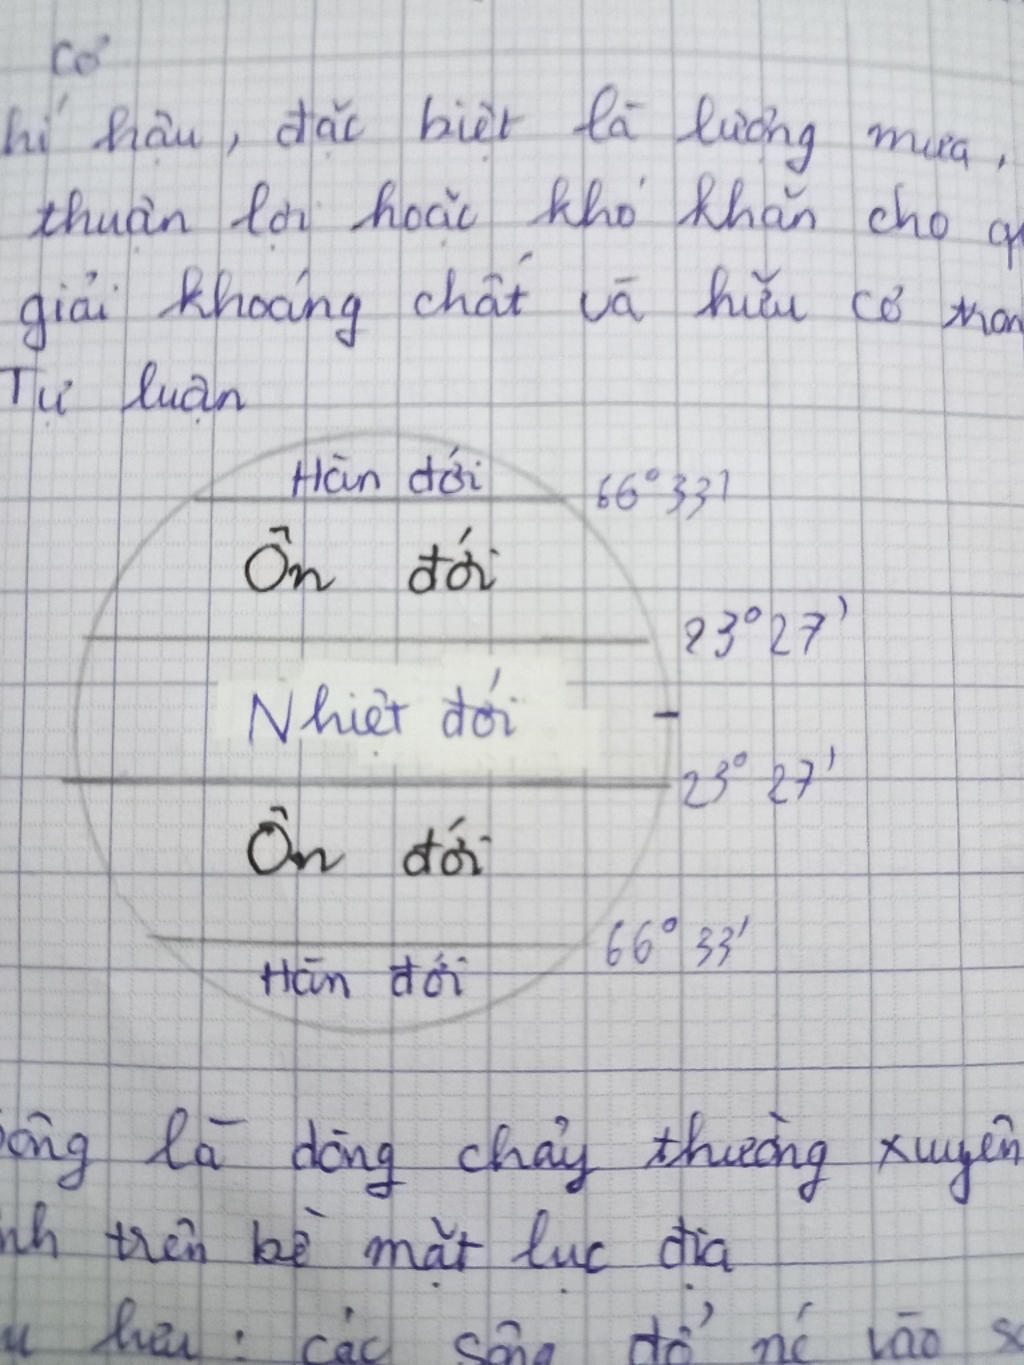 cơ
hí hậu, đặc biệt là lượng mưa,
thuận lợi hoặc khó khăn cho
giải khoáng chất và hữu cơ
Tự luận
Hàn đới 66°33'
Ôn đới
23°27'
Nhiệt đới
23°27'
Ôn đới
66°33'
Hàn đới
là dòng chảy thường xuyên
trên bề mặt lục địa
các sông đổ nc vào